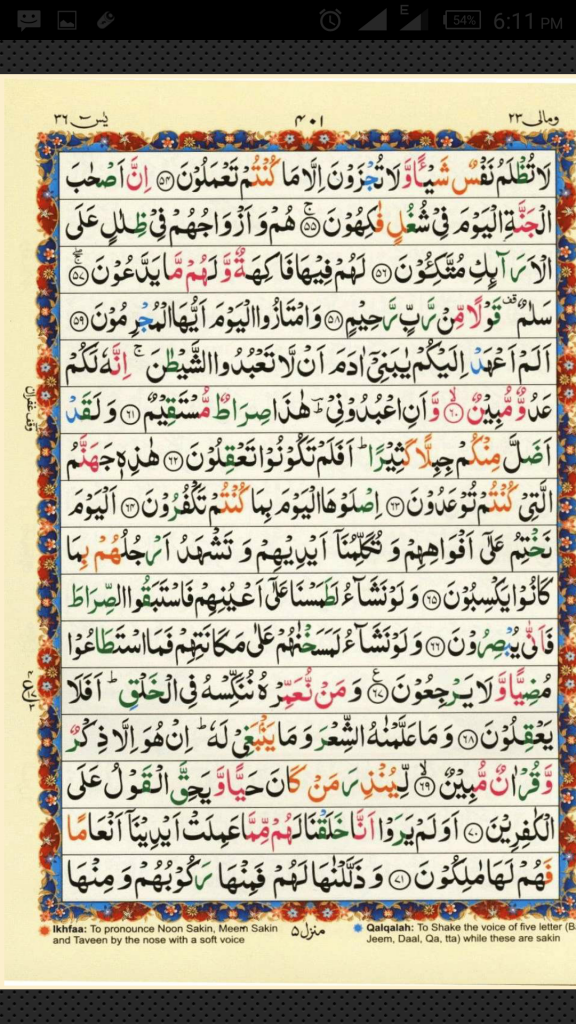 E
54%
6:11 PM
ومالی ۲۳
۴۰۱
یٰسٓ ۳۶
لَا تُظْلَمُ نَفْسٌ شَيْـًٔا وَّلَا تُجْزَوْنَ اِلَّا مَا كُنْتُمْ تَعْمَلُوْنَ ۝۵۴ اِنَّ اَصْحٰبَ
الْجَنَّةِ الْيَوْمَ فِيْ شُغُلٍ فٰكِهُوْنَ ۚ۝۵۵ هُمْ وَ اَزْوَاجُهُمْ فِيْ ظِلٰلٍ عَلَى
الْاَرَآىِٕكِ مُتَّكِـُٔوْنَ ۝۵۶ لَهُمْ فِيْهَا فَاكِهَةٌ وَّ لَهُمْ مَّا يَدَّعُوْنَ ۝۵۷
سَلٰمٌ ۫ قَوْلًا مِّنْ رَّبٍّ رَّحِيْمٍ ۝۵۸ وَ امْتَازُوا الْيَوْمَ اَيُّهَا الْمُجْرِمُوْنَ ۝۵۹
اَلَمْ اَعْهَدْ اِلَيْكُمْ يٰبَنِيْٓ اٰدَمَ اَنْ لَّا تَعْبُدُوا الشَّيْطٰنَ ۚ اِنَّهٗ لَكُمْ
عَدُوٌّ مُّبِيْنٌ ۙ۝۶۰ وَّ اَنِ اعْبُدُوْنِيْ ؕ هٰذَا صِرَاطٌ مُّسْتَقِيْمٌ ۝۶۱ وَ لَقَدْ
اَضَلَّ مِنْكُمْ جِبِلًّا كَثِيْرًا ؕ اَفَلَمْ تَكُوْنُوْا تَعْقِلُوْنَ ۝۶۲ هٰذِهٖ جَهَنَّمُ
الَّتِيْ كُنْتُمْ تُوْعَدُوْنَ ۝۶۳ اِصْلَوْهَا الْيَوْمَ بِمَا كُنْتُمْ تَكْفُرُوْنَ ۝۶۴ اَلْيَوْمَ
نَخْتِمُ عَلٰٓى اَفْوَاهِهِمْ وَ تُكَلِّمُنَاۤ اَيْدِيْهِمْ وَ تَشْهَدُ اَرْجُلُهُمْ بِمَا
كَانُوْا يَكْسِبُوْنَ ۝۶۵ وَ لَوْ نَشَآءُ لَطَمَسْنَا عَلٰٓى اَعْيُنِهِمْ فَاسْتَبَقُوا الصِّرَاطَ
فَاَنّٰى يُبْصِرُوْنَ ۝۶۶ وَ لَوْ نَشَآءُ لَمَسَخْنٰهُمْ عَلٰى مَكَانَتِهِمْ فَمَا اسْتَطَاعُوْا
مُضِيًّا وَّ لَا يَرْجِعُوْنَ ۝۶۷ وَ مَنْ نُّعَمِّرْهُ نُنَكِّسْهُ فِي الْخَلْقِ ؕ اَفَلَا
يَعْقِلُوْنَ ۝۶۸ وَ مَا عَلَّمْنٰهُ الشِّعْرَ وَ مَا يَنْۢبَغِيْ لَهٗ ؕ اِنْ هُوَ اِلَّا ذِكْرٌ
وَّ قُرْاٰنٌ مُّبِيْنٌ ۙ۝۶۹ لِّيُنْذِرَ مَنْ كَانَ حَيًّا وَّ يَحِقَّ الْقَوْلُ عَلَى
الْكٰفِرِيْنَ ۝۷۰ اَوَ لَمْ يَرَوْا اَنَّا خَلَقْنَا لَهُمْ مِّمَّا عَمِلَتْ اَيْدِيْنَاۤ اَنْعَامًا
فَهُمْ لَهَا مٰلِكُوْنَ ۝۷۱ وَ ذَلَّلْنٰهَا لَهُمْ فَمِنْهَا رَكُوْبُهُمْ وَ مِنْهَا
وقف غفران
Ikhfaa: To pronounce Noon Sakin, Meem Sakin
and Taveen by the nose with a soft voice
منزل ۵
Qalqalah: To Shake the voice of five letter (B
Jeem, Daal, Qa, tta) while these are sakin